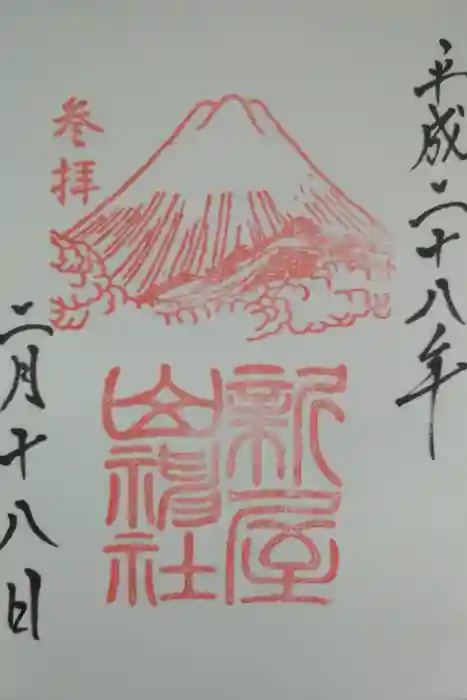 平成二十八年
参拝
新屋
山神社
二月十八日